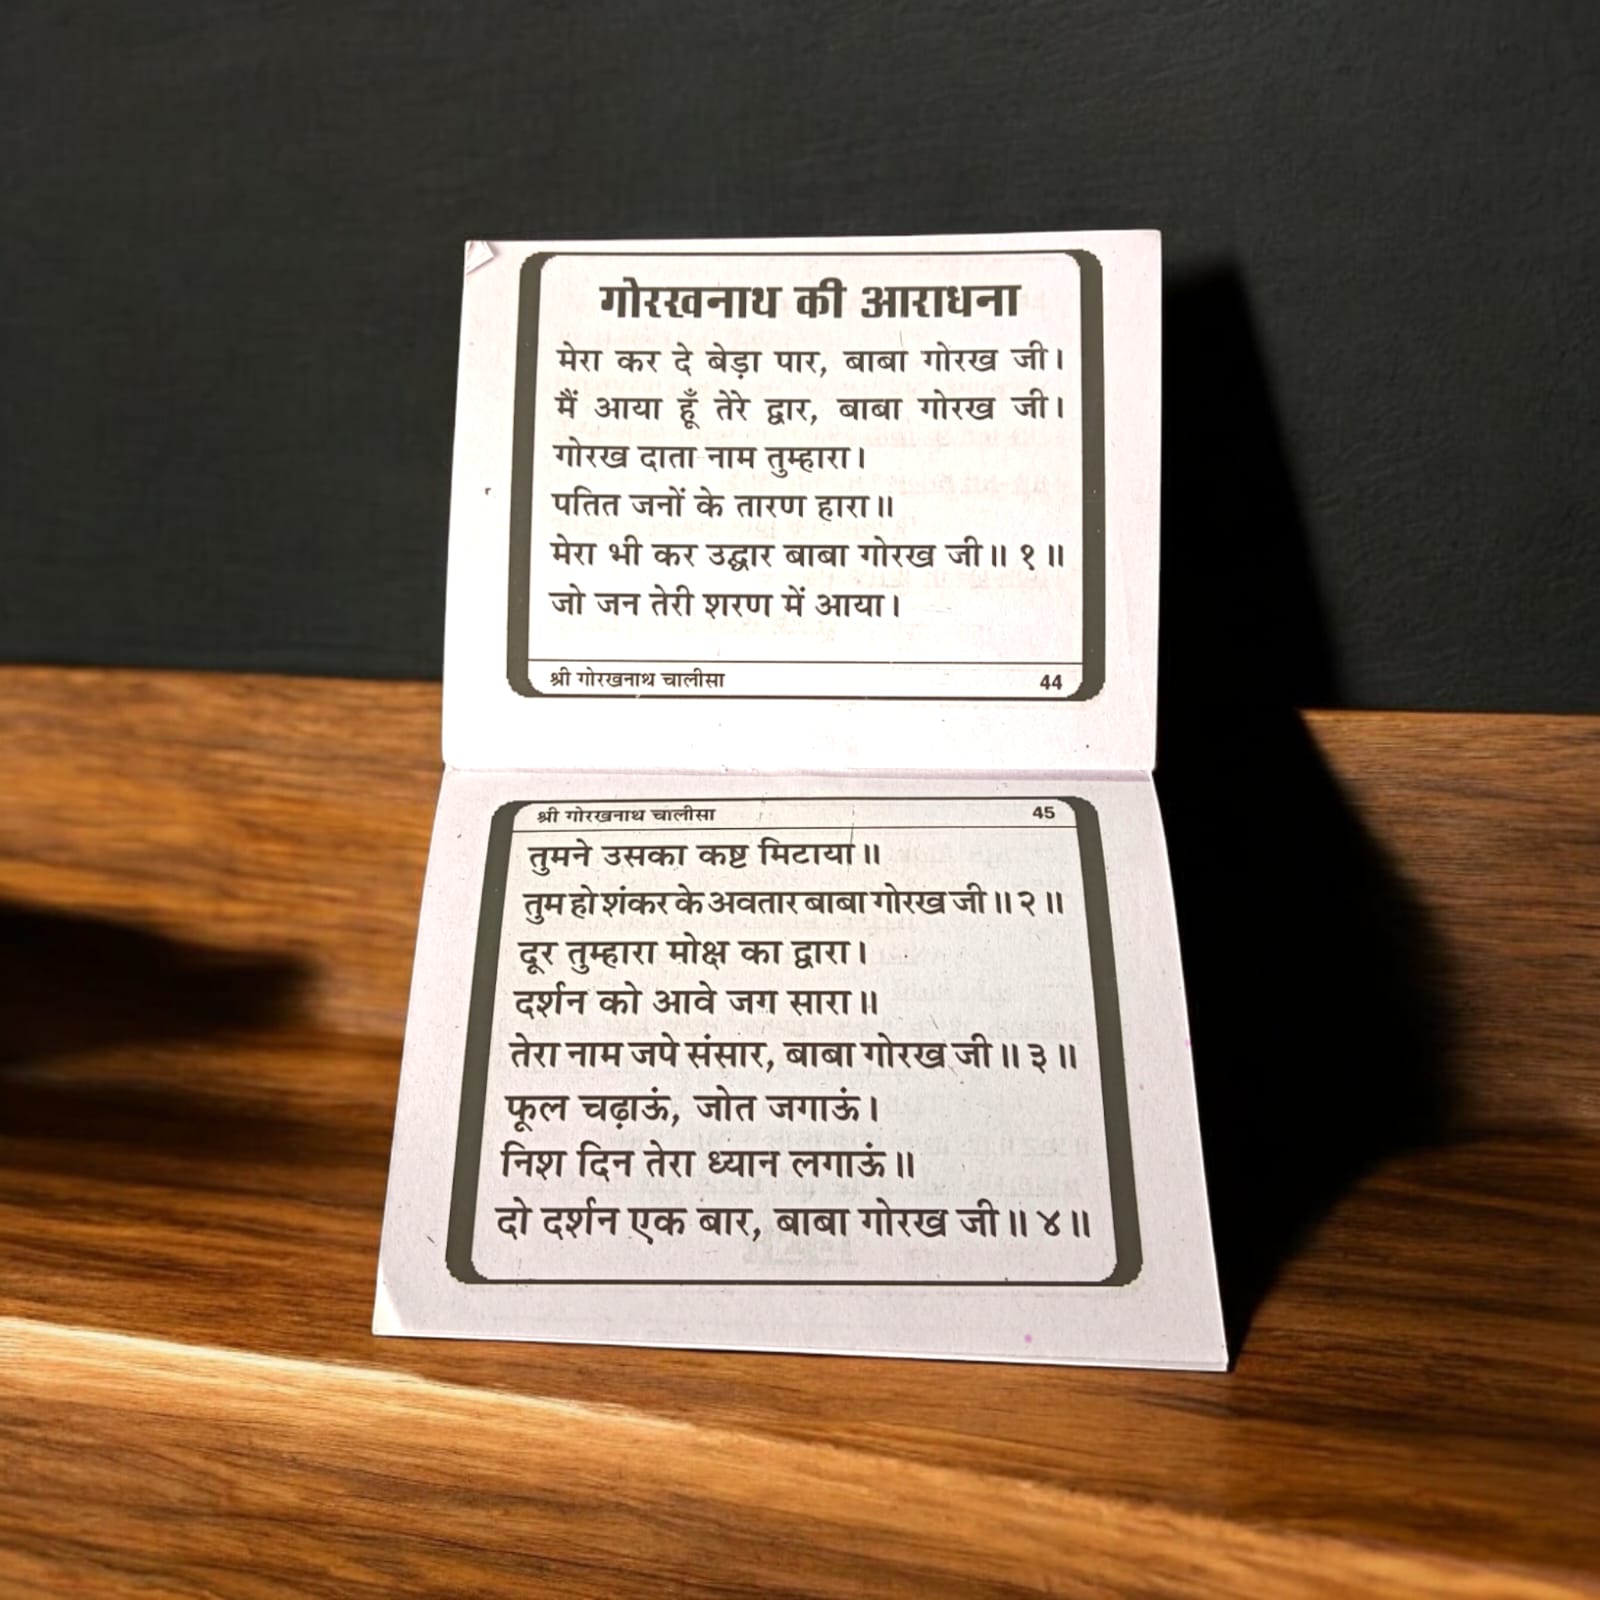 गोरखनाथ की आराधना
मेरा कर दे बेड़ा पार, बाबा गोरख जी।
मैं आया हूँ तेरे द्वार, बाबा गोरख जी।
गोरख दाता नाम तुम्हारा।
पतित जनों के तारण हारा॥
मेरा भी कर उद्धार बाबा गोरख जी॥ १ ॥
जो जन तेरी शरण में आया।
श्री गोरखनाथ चालीसा 44
श्री गोरखनाथ चालीसा 45
तुमने उसका कष्ट मिटाया॥
तुम हो शंकर के अवतार बाबा गोरख जी॥ २ ॥
दूर तुम्हारा मोक्ष का द्वारा।
दर्शन को आवे जग सारा॥
तेरा नाम जपे संसार, बाबा गोरख जी॥ ३ ॥
फूल चढ़ाऊं, जोत जगाऊं।
निश दिन तेरा ध्यान लगाऊं॥
दो दर्शन एक बार, बाबा गोरख जी॥ ४ ॥